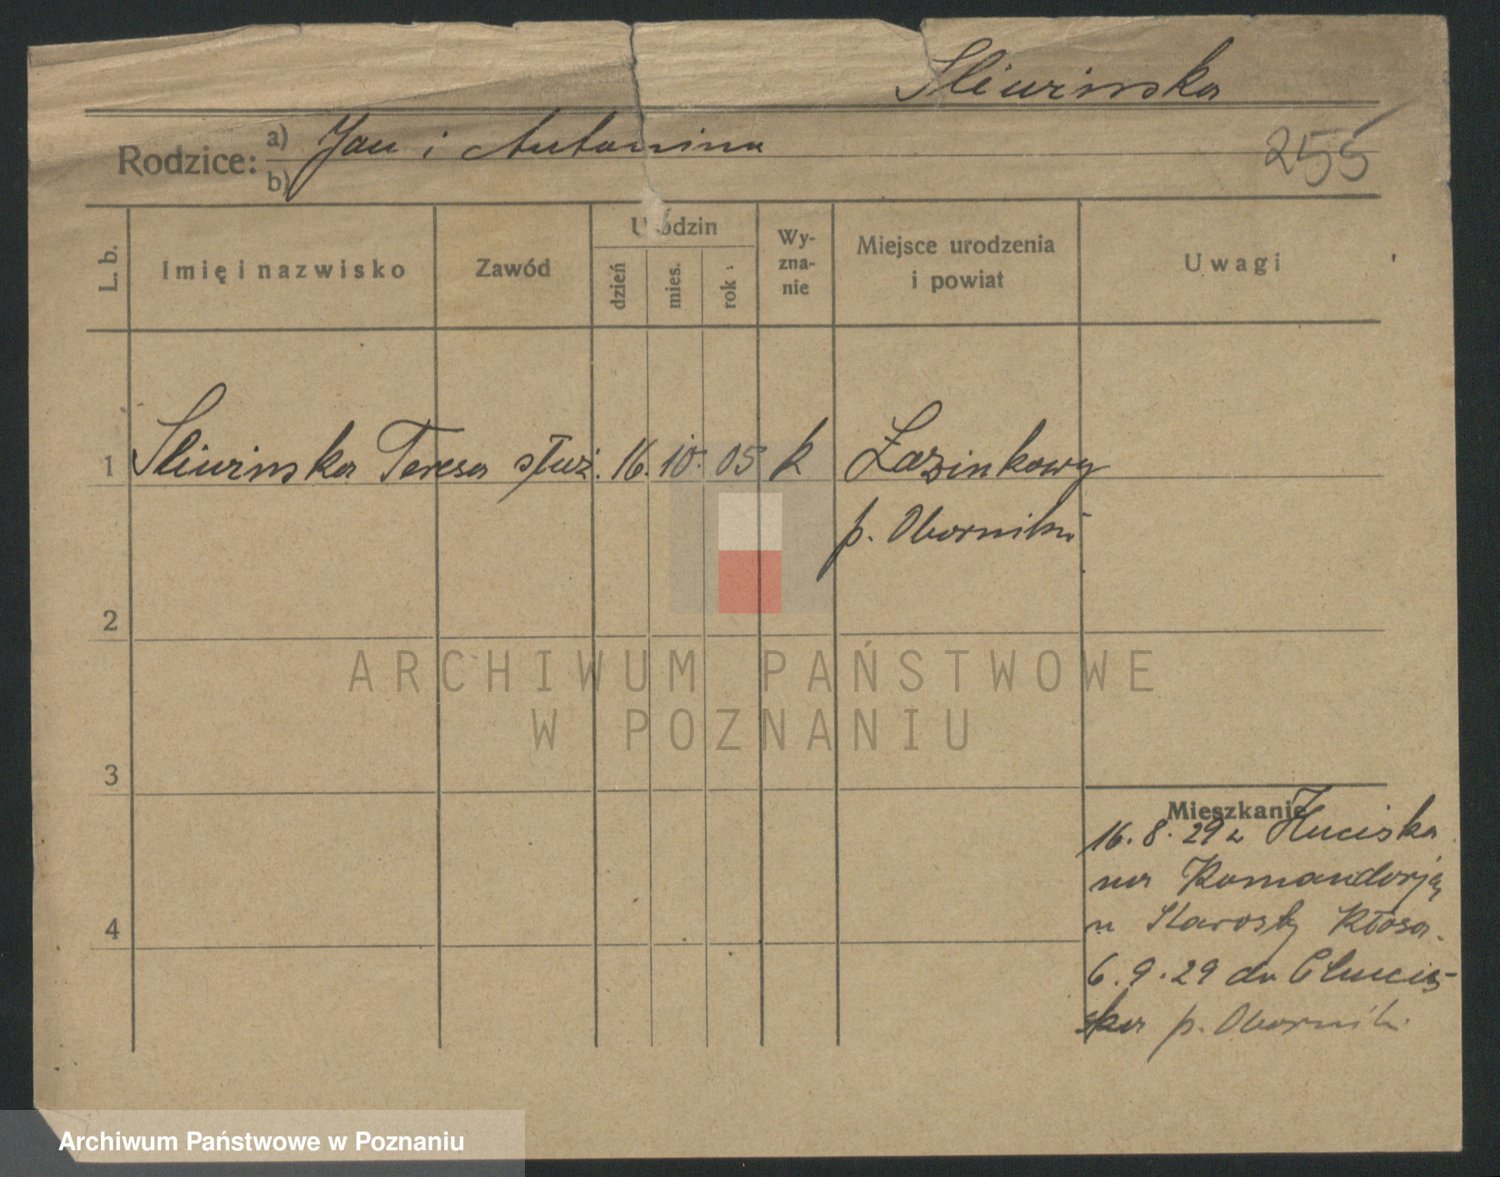 Sliwinska
Rodzice: a) Jan i Antonina
b)
255
L. b. Imię i nazwisko Zawód Urodzin dzień mies. rok Wy-zna-nie Miejsce urodzenia i powiat Uwagi
1 Sliwinska Teresa służ. 16. 10. 05 k Łazinkowy
p. Oborniki
2
3
4
Mieszkanie
16. 8. 29 z
na Komandorją
u Starosty Kłosa.
6. 9. 29 do
ska p. Obornik
ARCHIWUM PAŃSTWOWE
W POZNANIU
Archiwum Państwowe w Poznaniu